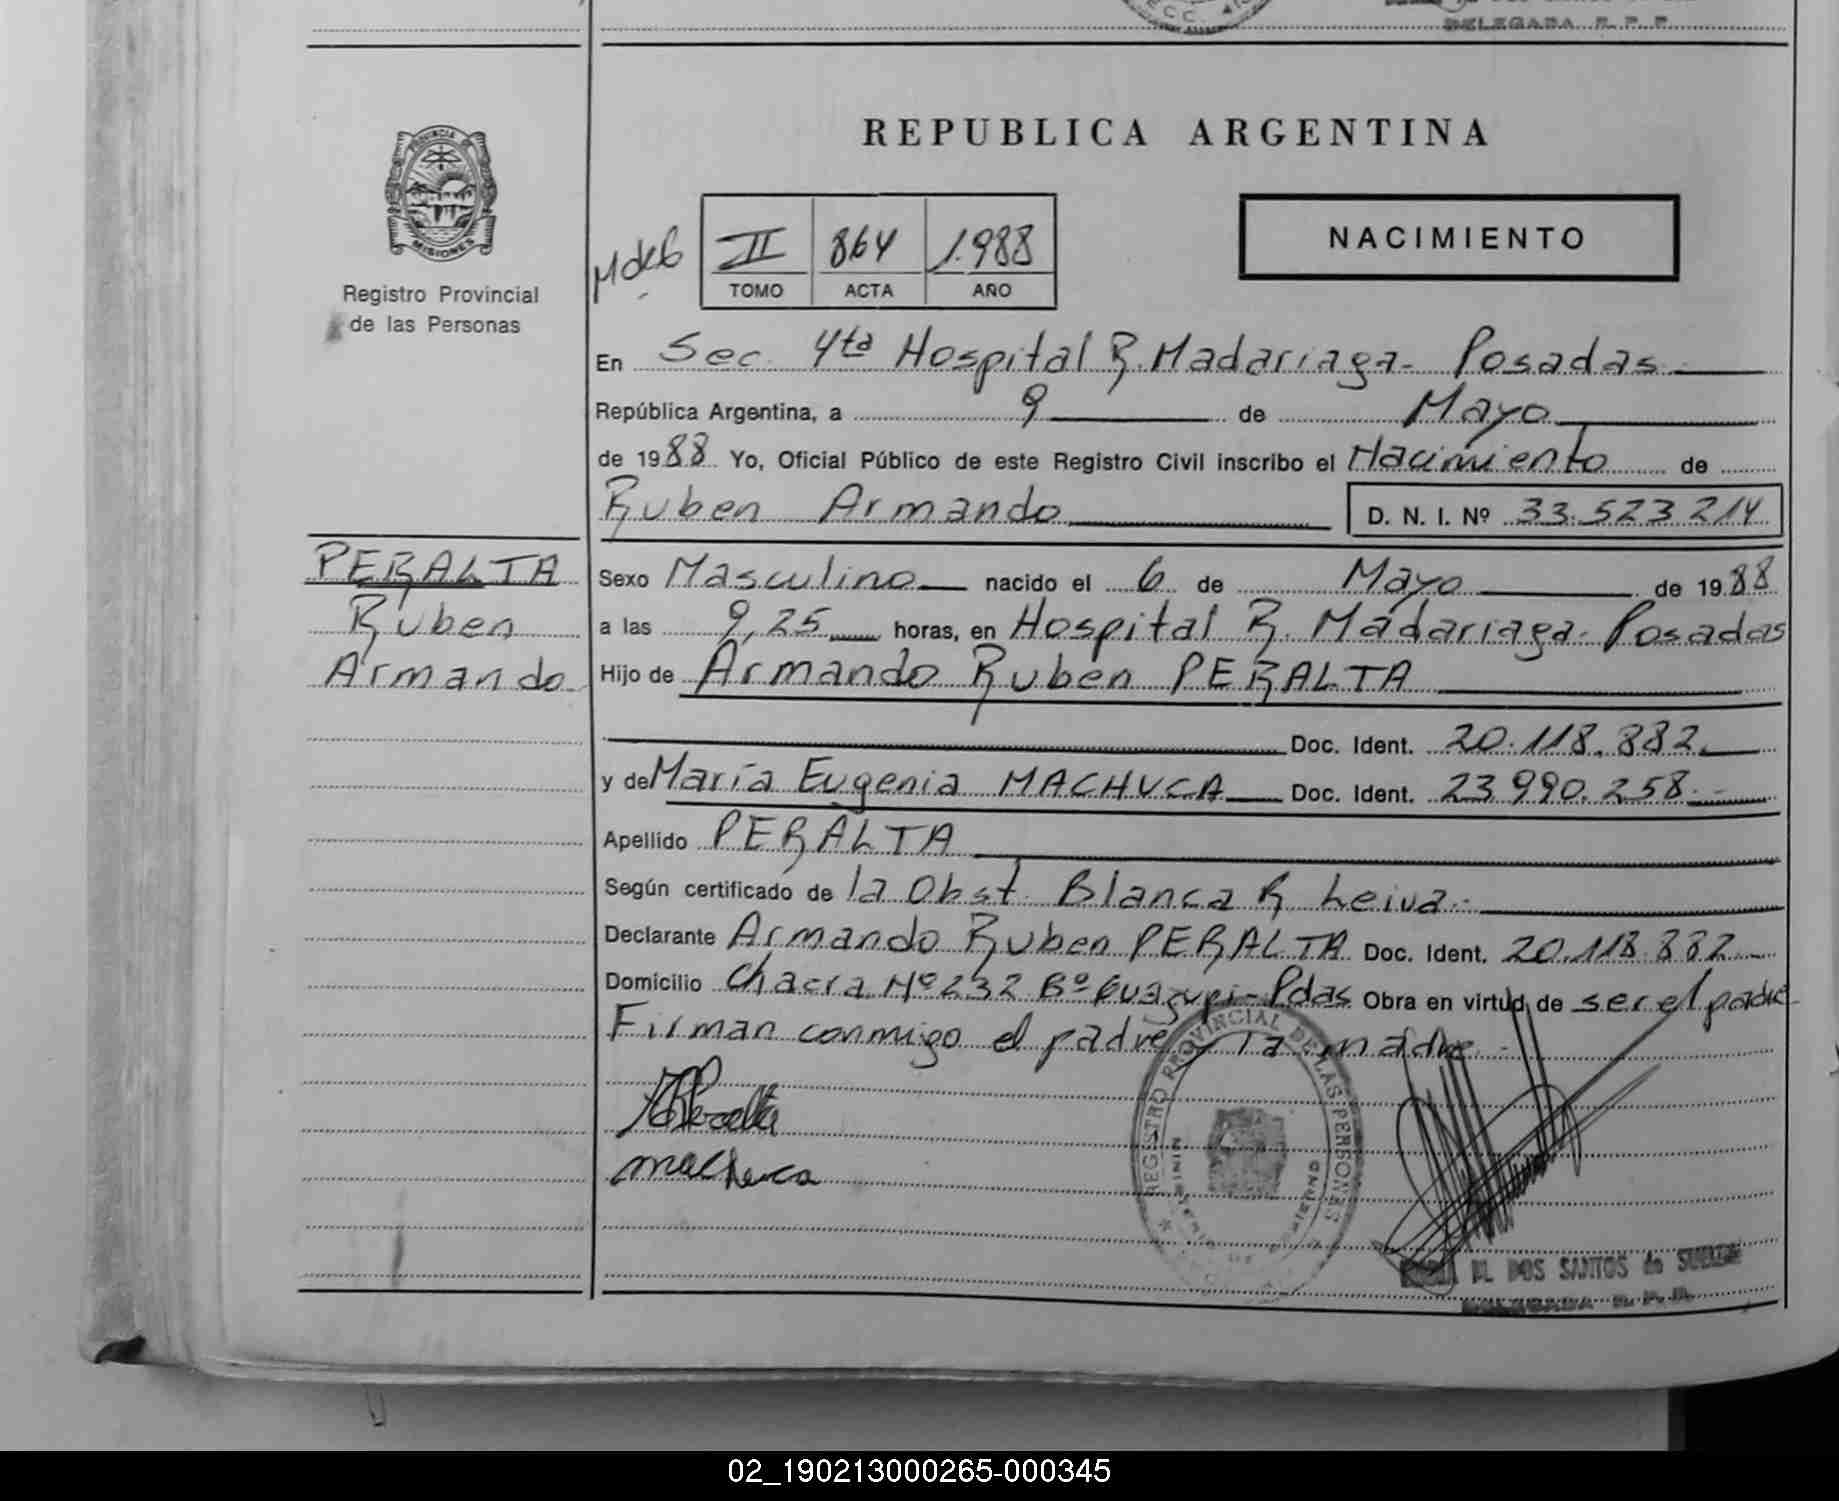 DELEGADA R. P. P.
REPUBLICA ARGENTINA
PROVINCIA DE
MISIONES
Registro Provincial
de las Personas
II 864 1.988
TOMO ACTA AÑO
NACIMIENTO
En Sec. 4ta Hospital R. Madariaga- Posadas
República Argentina, a 9 de Mayo
de 1988 Yo, Oficial Público de este Registro Civil inscribo el Nacimiento de
Ruben Armando D. N. I. Nº 33.523.214
PERALTA
Ruben
Armando
Sexo Masculino nacido el 6 de Mayo de 1988
a las 9,25 horas, en Hospital R. Madariaga- Posadas
Hijo de Armando Ruben PERALTA
Doc. Ident. 20.118.882
y de María Eugenia MACHUCA Doc. Ident. 23.990.258
Apellido PERALTA
Según certificado de la Obst. Blanca R Leiva.-
Declarante Armando Ruben PERALTA Doc. Ident. 20.118.882
Domicilio Chacra Nº 232 Bº Guazupi- Pdas Obra en virtud de ser el padre
Firman conmigo el padre y la madre.-
Peralta
machuca
REGISTRO PROVINCIAL DE LAS PERSONAS
DOS SANTOS de
DELEGADA R. P. P.
02_190213000265-000345